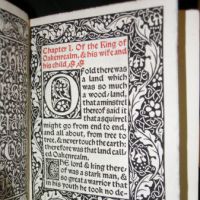 Chapter I. Of the King of
Oakenrealm, & his wife and
his child.
Of old there was
a land which
was so much
a wood-land,
that a minstrel
thereof said it
that a squirrel
might go from end to end,
and all about, from tree to
tree, & never touch the earth:
therefore was that land call-
ed Oakenrealm.
The lord & king there-
of was a stark man, &
so great a warrior that
in his youth he took no de-